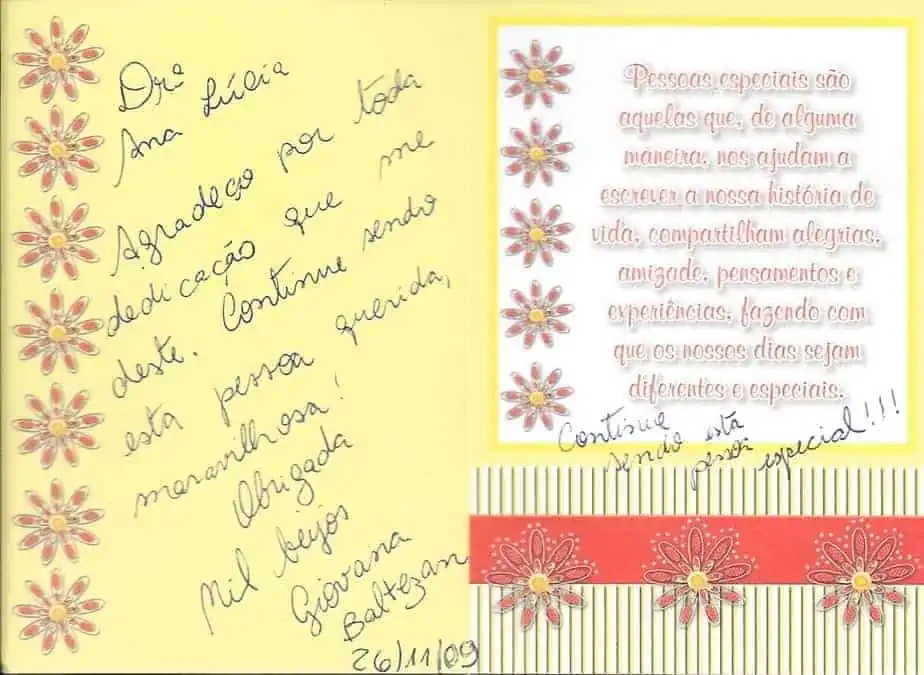 Drª
Ana Lúcia
Agradeço por toda
dedicação que me
deste. Continue sendo
esta pessoa querida,
maravilhosa!
Obrigada
Mil beijos
Giovana
Baltezan
26/11/09
Pessoas especiais são
aquelas que, de alguma
maneira, nos ajudam a
escrever a nossa história de
vida, compartilham alegrias,
amizade, pensamentos e
experiências, fazendo com
que os nossos dias sejam
diferentes e especiais.
Continue
sendo esta
pessoa especial!!!